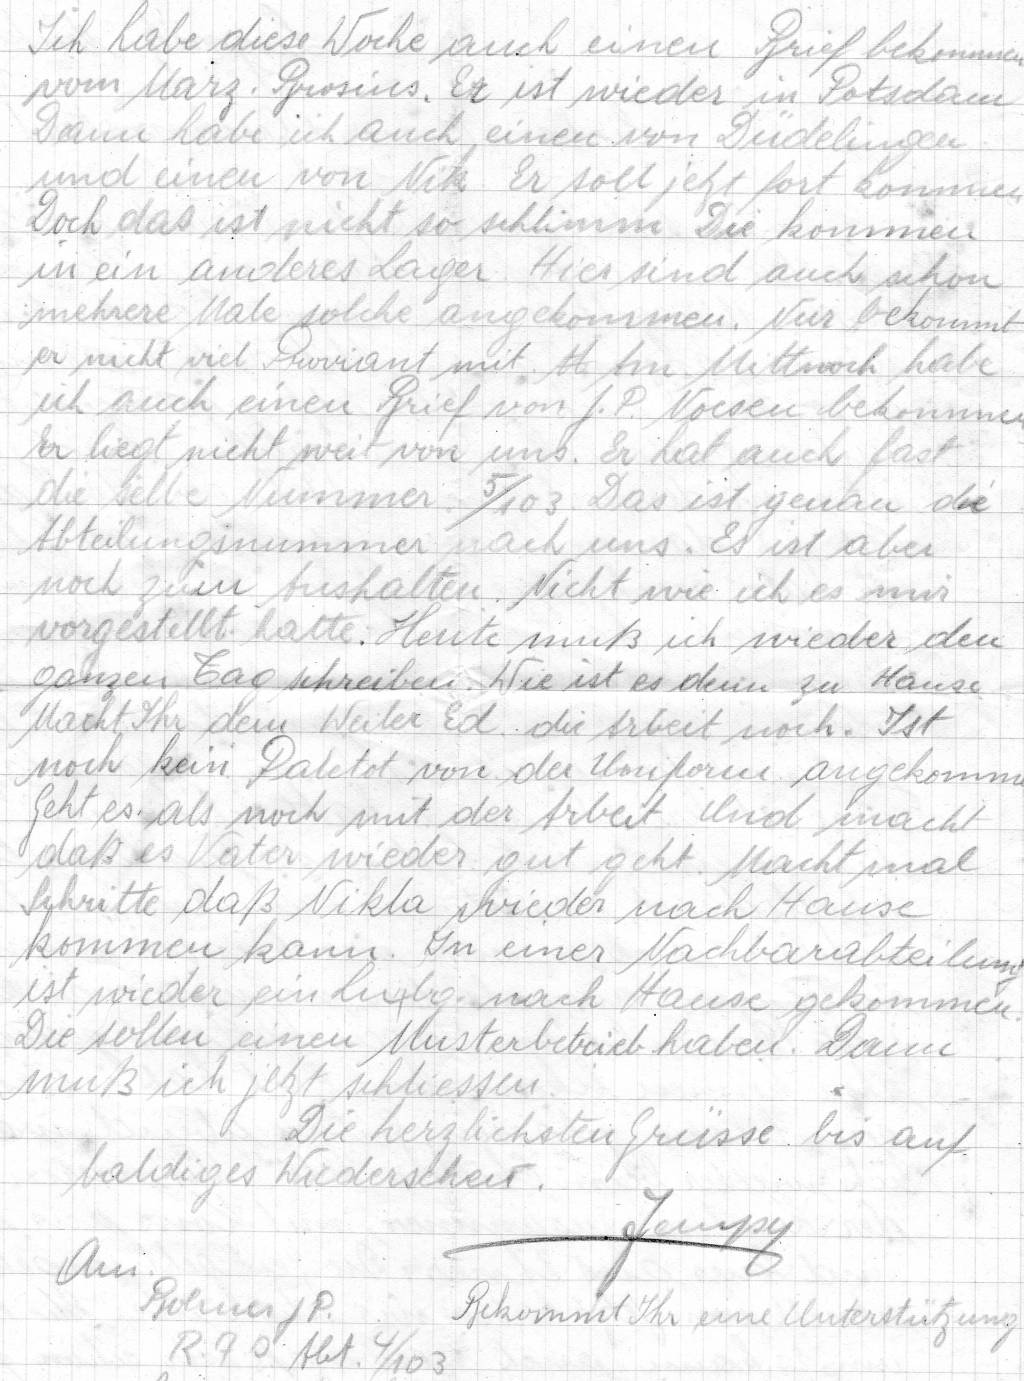 Ich habe diese Woche auch einen Brief bekommen
vom Marz. Brosius. Er ist wieder in Potsdam
Dann habe ich auch einen von Düdelingen
und einen von Nik. Er soll jetzt fort kommen
Doch das ist nicht so schlimm Die kommen
in ein anderes Lager. Hier sind auch schon
mehrere Male solche angekommen. Nur bekommt
er nicht viel Proviant mit. Am Mittwoch habe
ich auch einen Brief von J.P. Noesen bekommen
Er liegt nicht weit von uns. Er hat auch fast
die selbe Nummer. 5/103 Das ist genau die
Abteilungsnummer nach uns. Es ist aber
noch zum Aushalten. Nicht wie ich es mir
vorgestellt hatte. Heute muß ich wieder den
ganzen Tag schreiben. Wie ist es denn zu Hause
Macht Ihr dem Weiler Ed. die Arbeit noch. Ist
noch kein Paletot von der Uniform angekomme
Geht es als noch mit der Arbeit Und macht
daß es Vater wieder gut geht. Macht mal
Schritte daß Nikla wieder nach Hause
kommen kann. In einer Nachbarabteilung
ist wieder ein Luxbg. nach Hause gekommen.
Die sollen einen Musterbetrieb haben. Dann
muß ich jetzt schliessen.
Die herzlichsten Grüsse bis auf
baldiges Wiedersehen.
Jempy
Am.
J P. Bekommt Ihr eine Unterstützung
Abt. 4/103